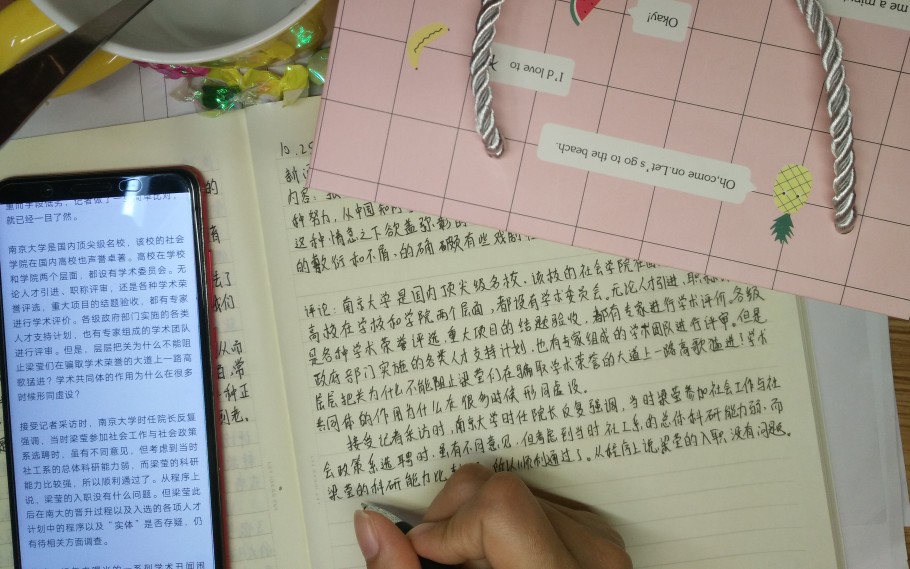 就已经一目了然。
南京大学是国内顶尖级名校，该校的社会
学院在国内高校也声誉卓著。高校在学校
和学院两个层面，都设有学术委员会。无
论人才引进、职称评审、还是各种学术荣
誉评选、重大项目的结题验收，都有专家
进行学术评价。各级政府部门实施的各类
人才支持计划，也有专家组成的学术团队
进行评审。但是，层层把关为什么不能阻
止梁莹们在骗取学术荣誉的大道上一路高
歌猛进？学术共同体的作用为什么在很多
时候形同虚设？
接受记者采访时，南京大学时任院长反复
强调，当时梁莹参加社会工作与社会政策
系选聘时，虽有不同意见，但考虑到当时
社工系的总体科研能力弱，而梁莹的科研
能力比较强，所以顺利通过了。从程序上
说，梁莹的入职没有什么问题。但梁莹此
后在南大的晋升过程以及入选的各项人才
计划中的程序以及“实体”是否存疑，仍
有待相关方面调查。
10.25
内容：
种努力，从中国知网
这种情态之下欲盖弥彰的
的敷衍和不屑、的确颇有些戏剧
评论：南京大学是国内顶尖级名校、该校的社会学院在国
高校在学校和学院两个层面，都设有学术委员会。无论人才引进、职称
是各种学术荣誉评选、重大项目的结题验收，都有专家进行学术评价。各级
政府部门实施的各类人才支持计划，也有专家组成的学术团队进行评审。但是
层层把关为什么不能阻止梁莹们在骗取学术荣誉的大道上一路高歌猛进？学术
共同体的作用为什么在很多时候形同虚设。
接受记者采访时，南京大学时任院长反复强调，当时梁莹参加社会工作与社
会政策系选聘时，虽有不同意见，但考虑到当时社工系的总体科研能力弱、而
梁莹的科研能力比 所以顺利通过了。从程序上说，梁莹的入职没有问题。
me a min
Okay!
I'd love to
Oh,come on.Let's go to the beach.